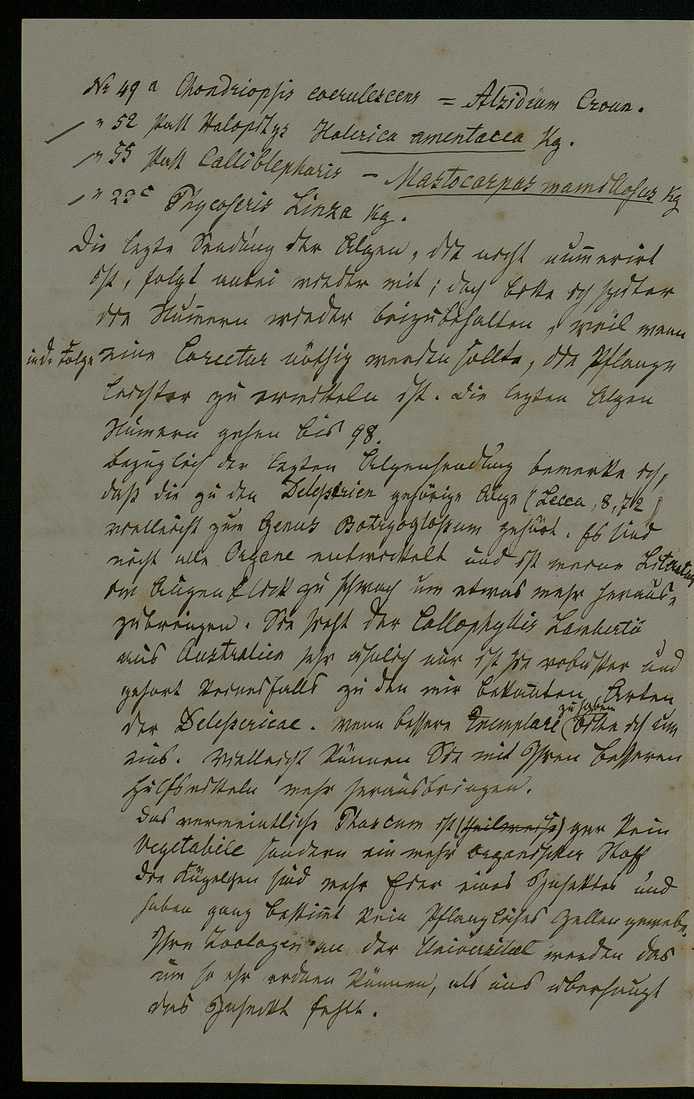 Nr 49 a Chondriopsis coerulescens = Alsidium Croun.
" 52 statt Halopitys Holerica amentacea Kg.
" 55 statt Calliblepharis – Mastocarpus mamillosus Kg
" 23c Phycoseris Linza Kg.
Die letzte Sendung der Algen, die nicht numerirt
ist, folgt anbei wieder mit; doch bitte ich später
die Numern wieder beizubehalten, weil wenn
in d. Folge eine Corectur nöthig werden sollte, die Pflanze
leichter zu ermitteln ist. Die letzten Algen
Numern gehen bis 98.
Bezüglich der letzten Algensendung bemerke ich,
daß die zu den Delesserien gehörige Alge (Lecca, 8, 72)
vielleicht zum Genus Botryoglossum gehört. Es sind
nicht alle Organe entwickelt und ist meine Literatur
im Augenblick zu schwach um etwas mehr heraus-
zubringen. Sie sieht der Callophyllis Lamberti
aus Australien sehr ähnlich nur ist sie robuster und
gehört keinesfalls zu den mir bekannten Arten
der Delesserieae. Wenn bessere Exemplare zu haben bitte ich um
eins. Vielleicht können Sie mit Ihren besseren
Hülfsmitteln mehr herausbringen.
Das vermeintliche Phascum ist (theilweise) gar kein
Vegetabile sondern ein mehr organischer Stoff
Die Kügelchen sind mehr Eier eines Insektes und
haben ganz bestimt kein Pflanzliches Zellengewebe.
Ihre Zoologen an der Universität werden das
um so eher ordnen können, als uns überhaupt
das Insekt fehlt.